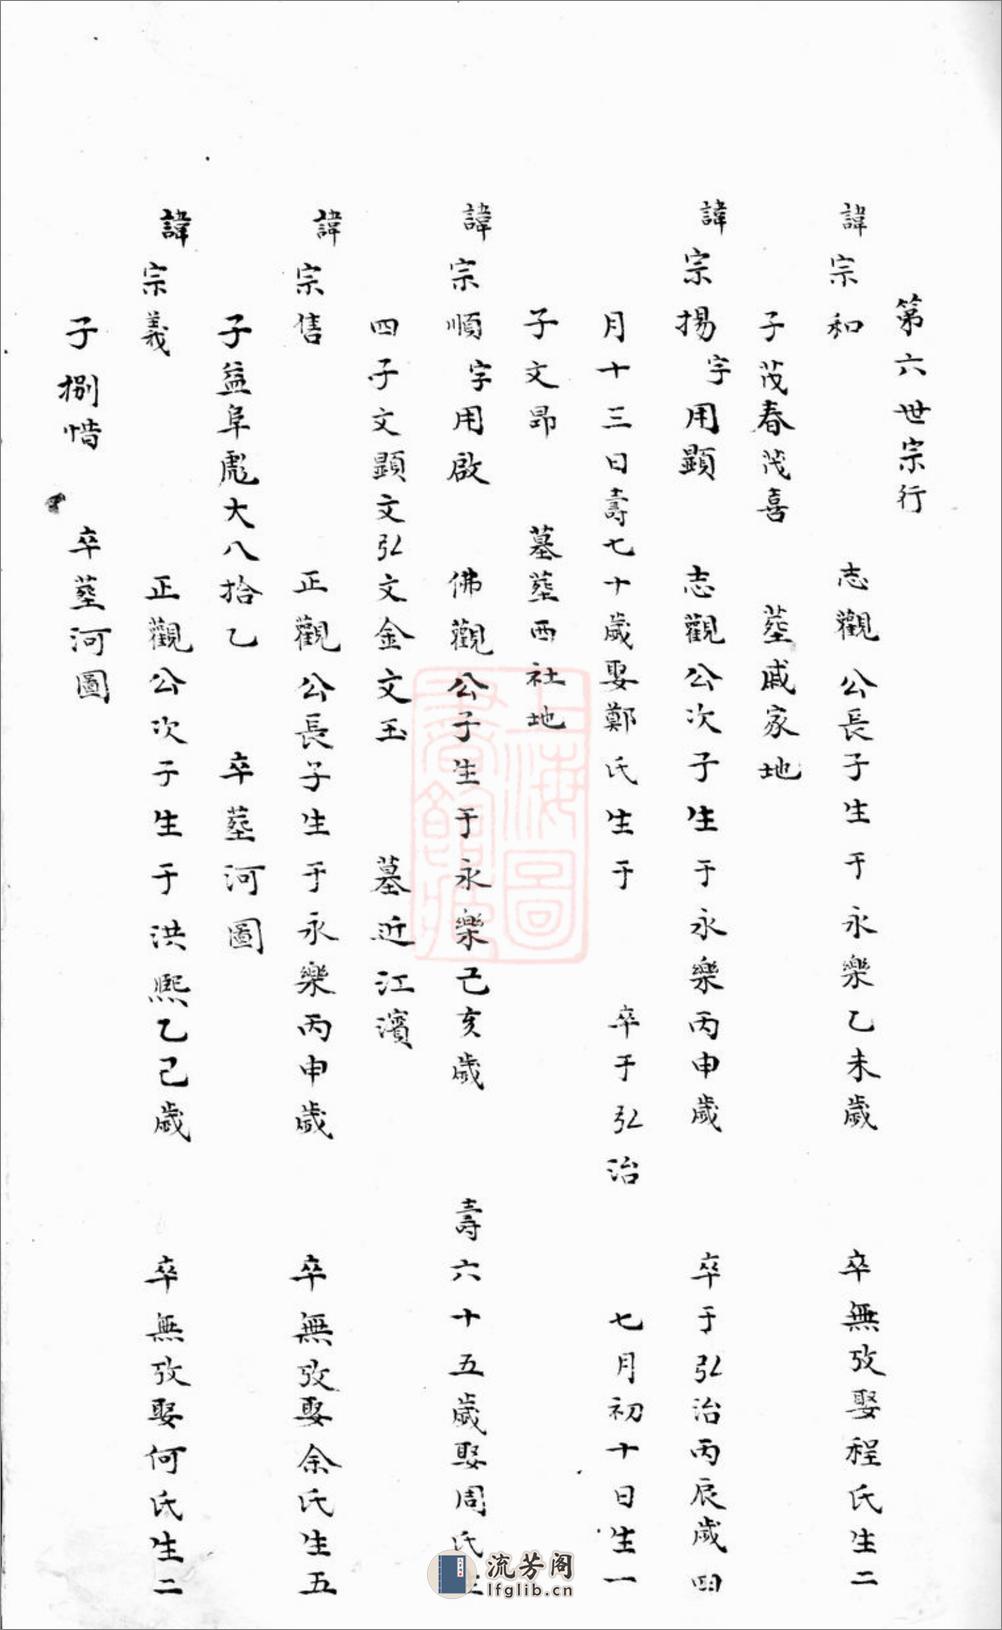 第六世宗行
諱宗和 志觀公長子生于永樂乙未歲 卒無攷娶程氏生二
子茂春茂喜 塟戚家地
諱宗揚字用顯 志觀公次子生于永樂丙申歲 卒于弘治丙辰歲四
月十三日壽七十歲娶鄭氏生于 卒于弘治 七月初十日生一
子文昂 墓塟西社地
諱宗順字用啟 佛觀公子生于永樂己亥歲 壽六十五歲娶周氏
四子文顯文弘文金文玉 墓近江濱
諱宗售 正觀公長子生于永樂丙申歲 卒無攷娶余氏生五
子益阜彪大八拾乙 卒塟河圖
諱宗義 正觀公次子生于洪熙乙己歲 卒無攷娶何氏生二
子捌惜 卒塟河圖
上海圖
書館藏
流芳阁
lfglib.cn